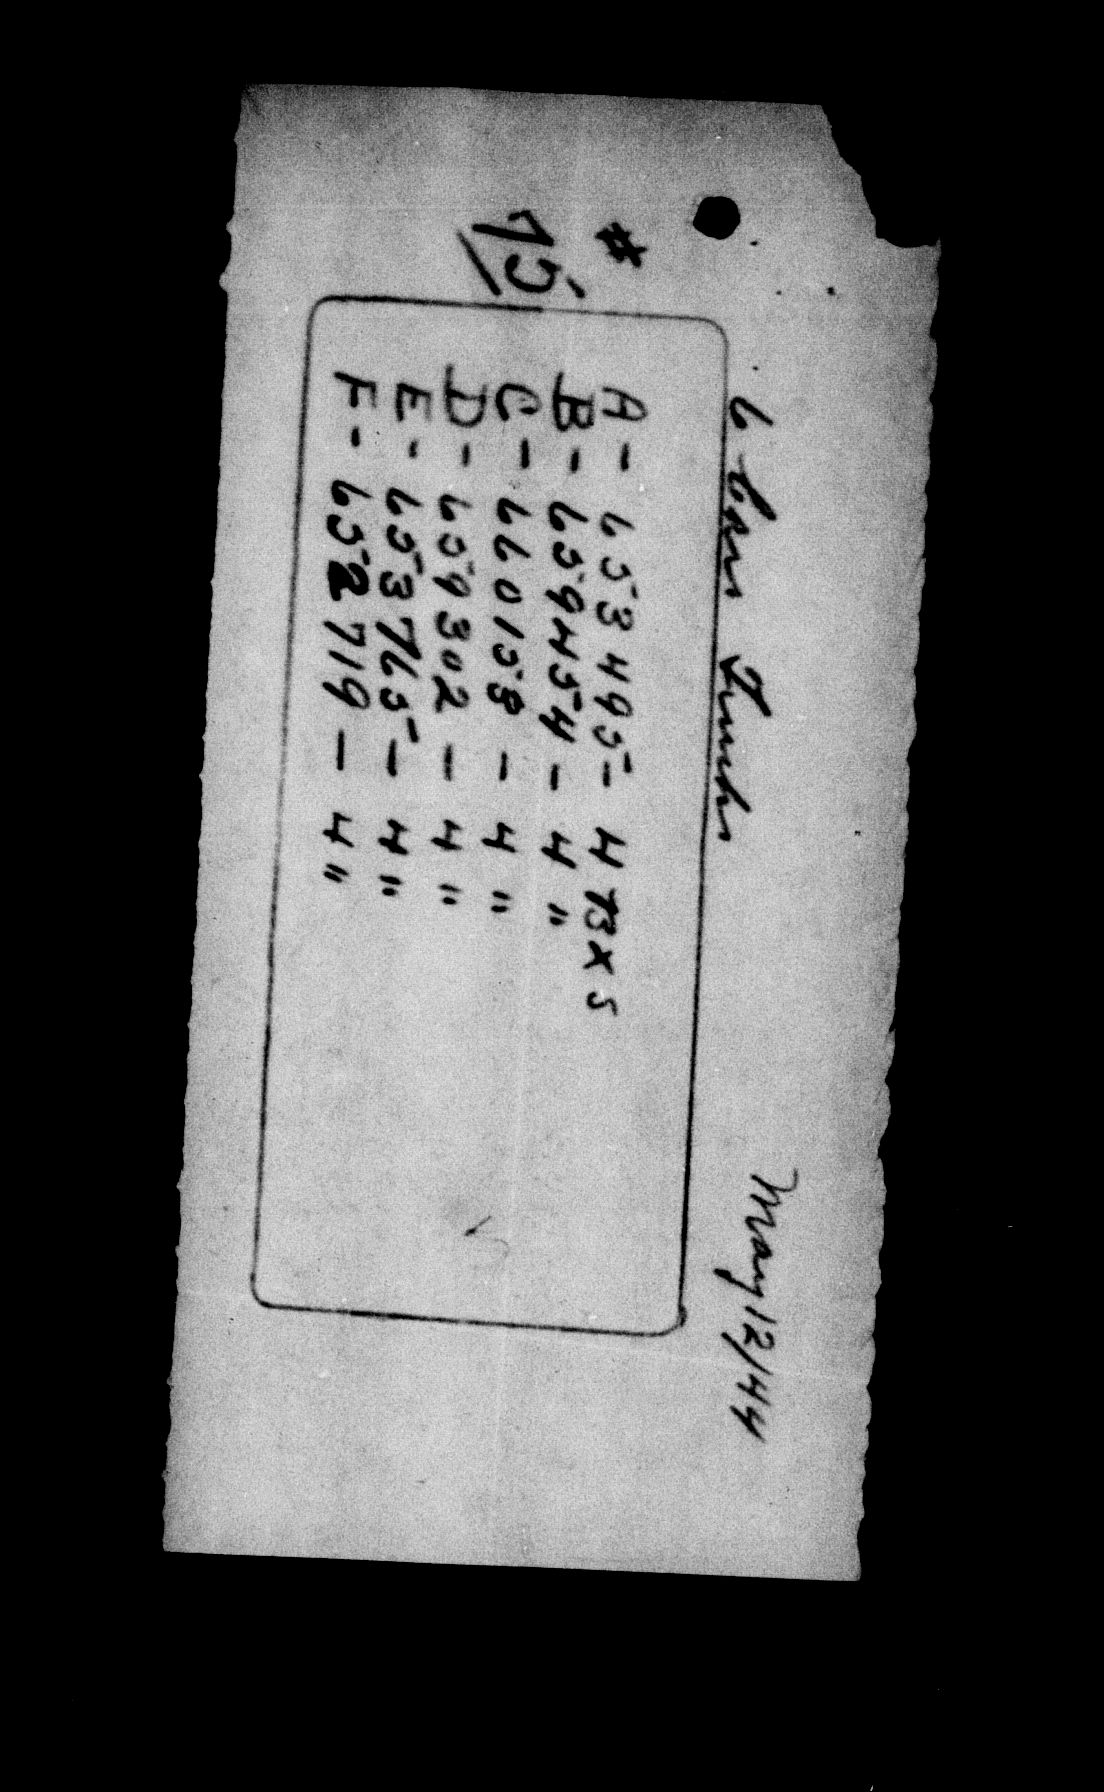 May 12/44
6 Cars Trucks
#
75
A - 653495 - 4 BXS
B - 659454 - 4 "
C - 660158 - 4 "
D - 659302 - 4 "
E - 653765 - 4 "
F - 652719 - 4 "